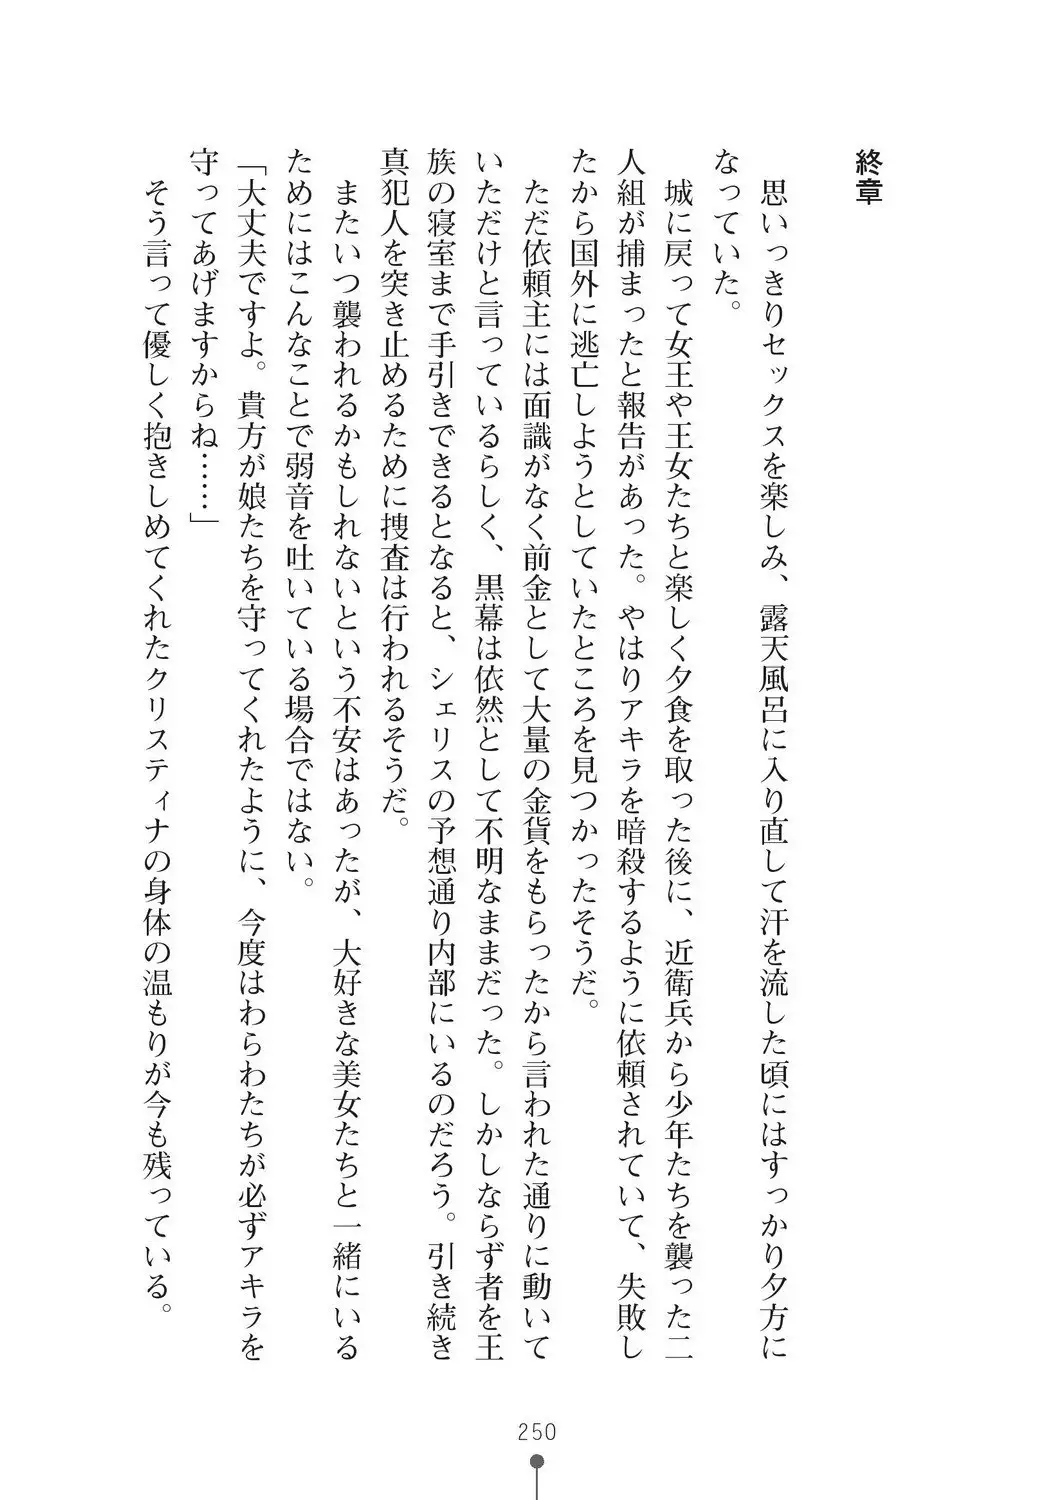 終章
思いっきりセックスを楽しみ、露天風呂に入り直して汗を流した頃にはすっかり夕方に
なっていた。
城に戻って女王や王女たちと楽しく夕食を取った後に、近衛兵から少年たちを襲った二
人組が捕まったと報告があった。やはりアキラを暗殺するように依頼されていて、失敗し
たから国外に逃亡しようとしていたところを見つかったそうだ。
ただ依頼主には面識がなく前金として大量の金貨をもらったから言われた通りに動いて
いただけと言っているらしく、黒幕は依然として不明なままだった。しかしならず者を王
族の寝室まで手引きできるとなると、シェリスの予想通り内部にいるのだろう。引き続き
真犯人を突き止めるために捜査は行われるそうだ。
またいつ襲われるかもしれないという不安はあったが、大好きな美女たちと一緒にいる
ためにはこんなことで弱音を吐いている場合ではない。
「大丈夫ですよ。貴方が娘たちを守ってくれたように、今度はわらわたちが必ずアキラを
守ってあげますからね……」
そう言って優しく抱きしめてくれたクリスティナの身体の温もりが今も残っている。
250